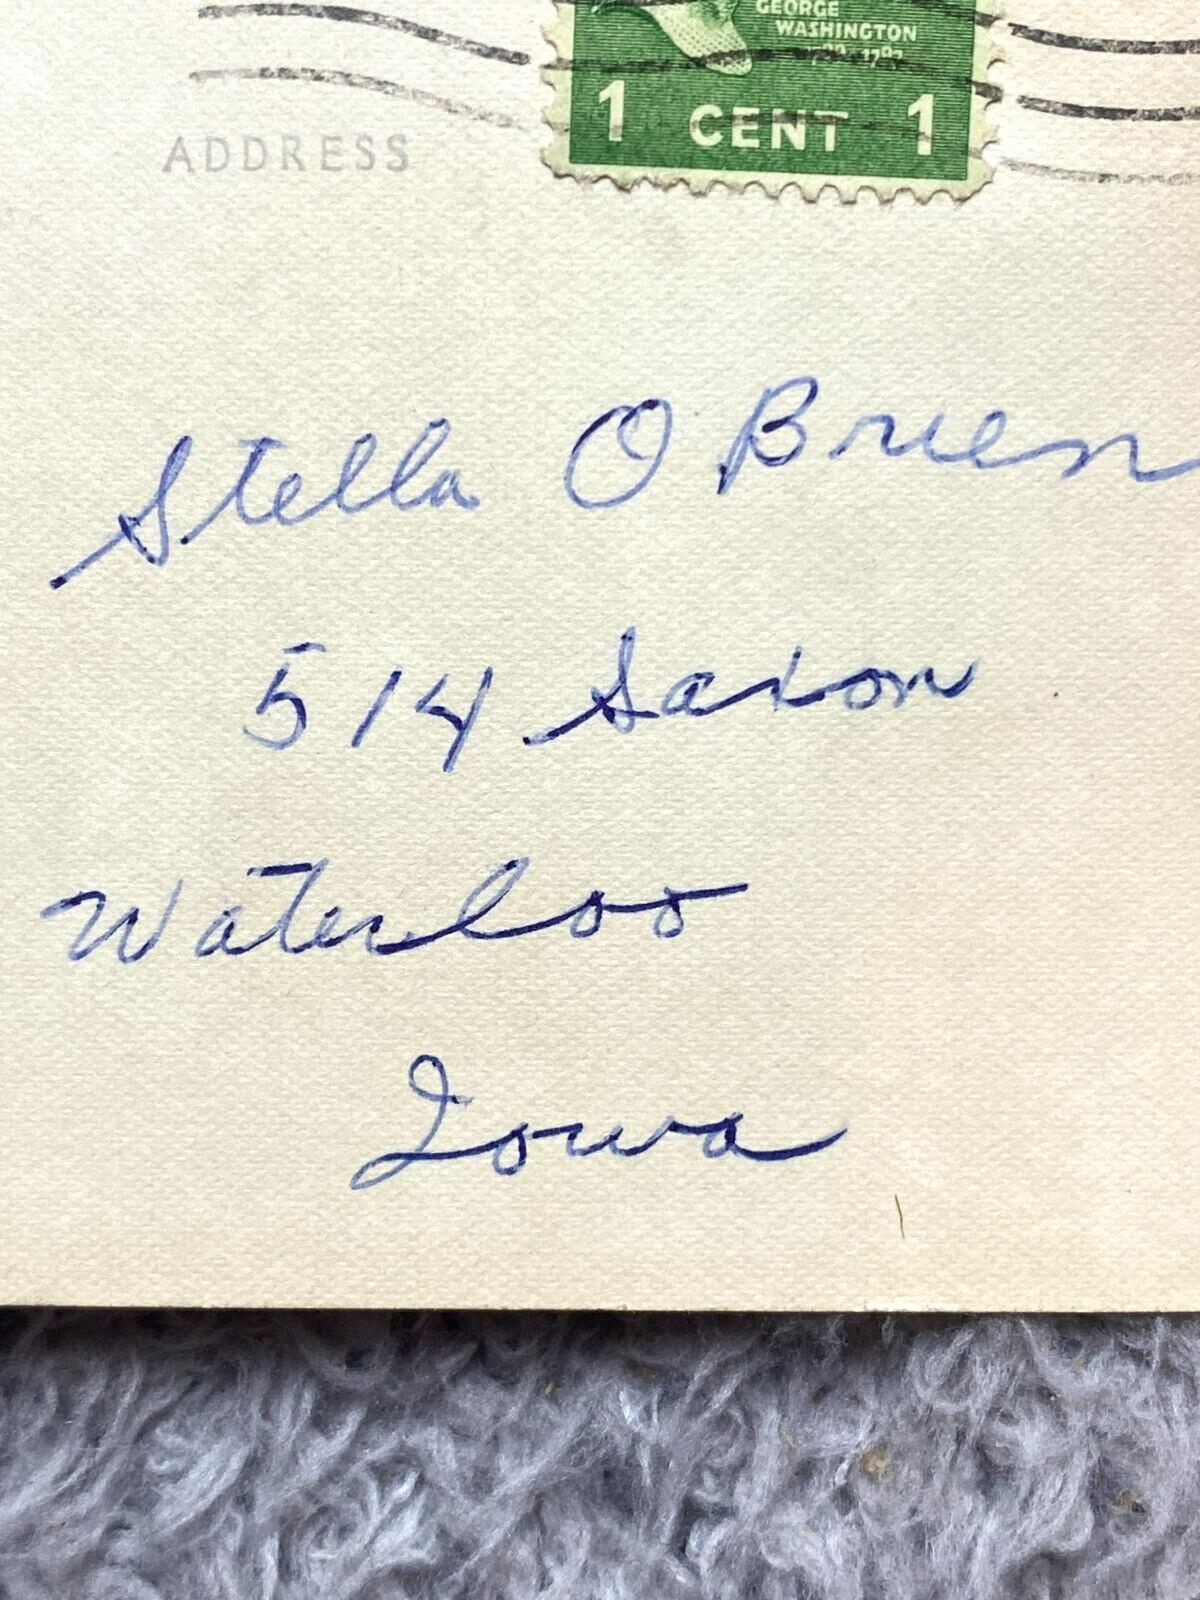 GEORGE
WASHINGTON
1789-1797
1 CENT 1
ADDRESS
Stella O Brien
514 Saxon
Waterloo
Iowa